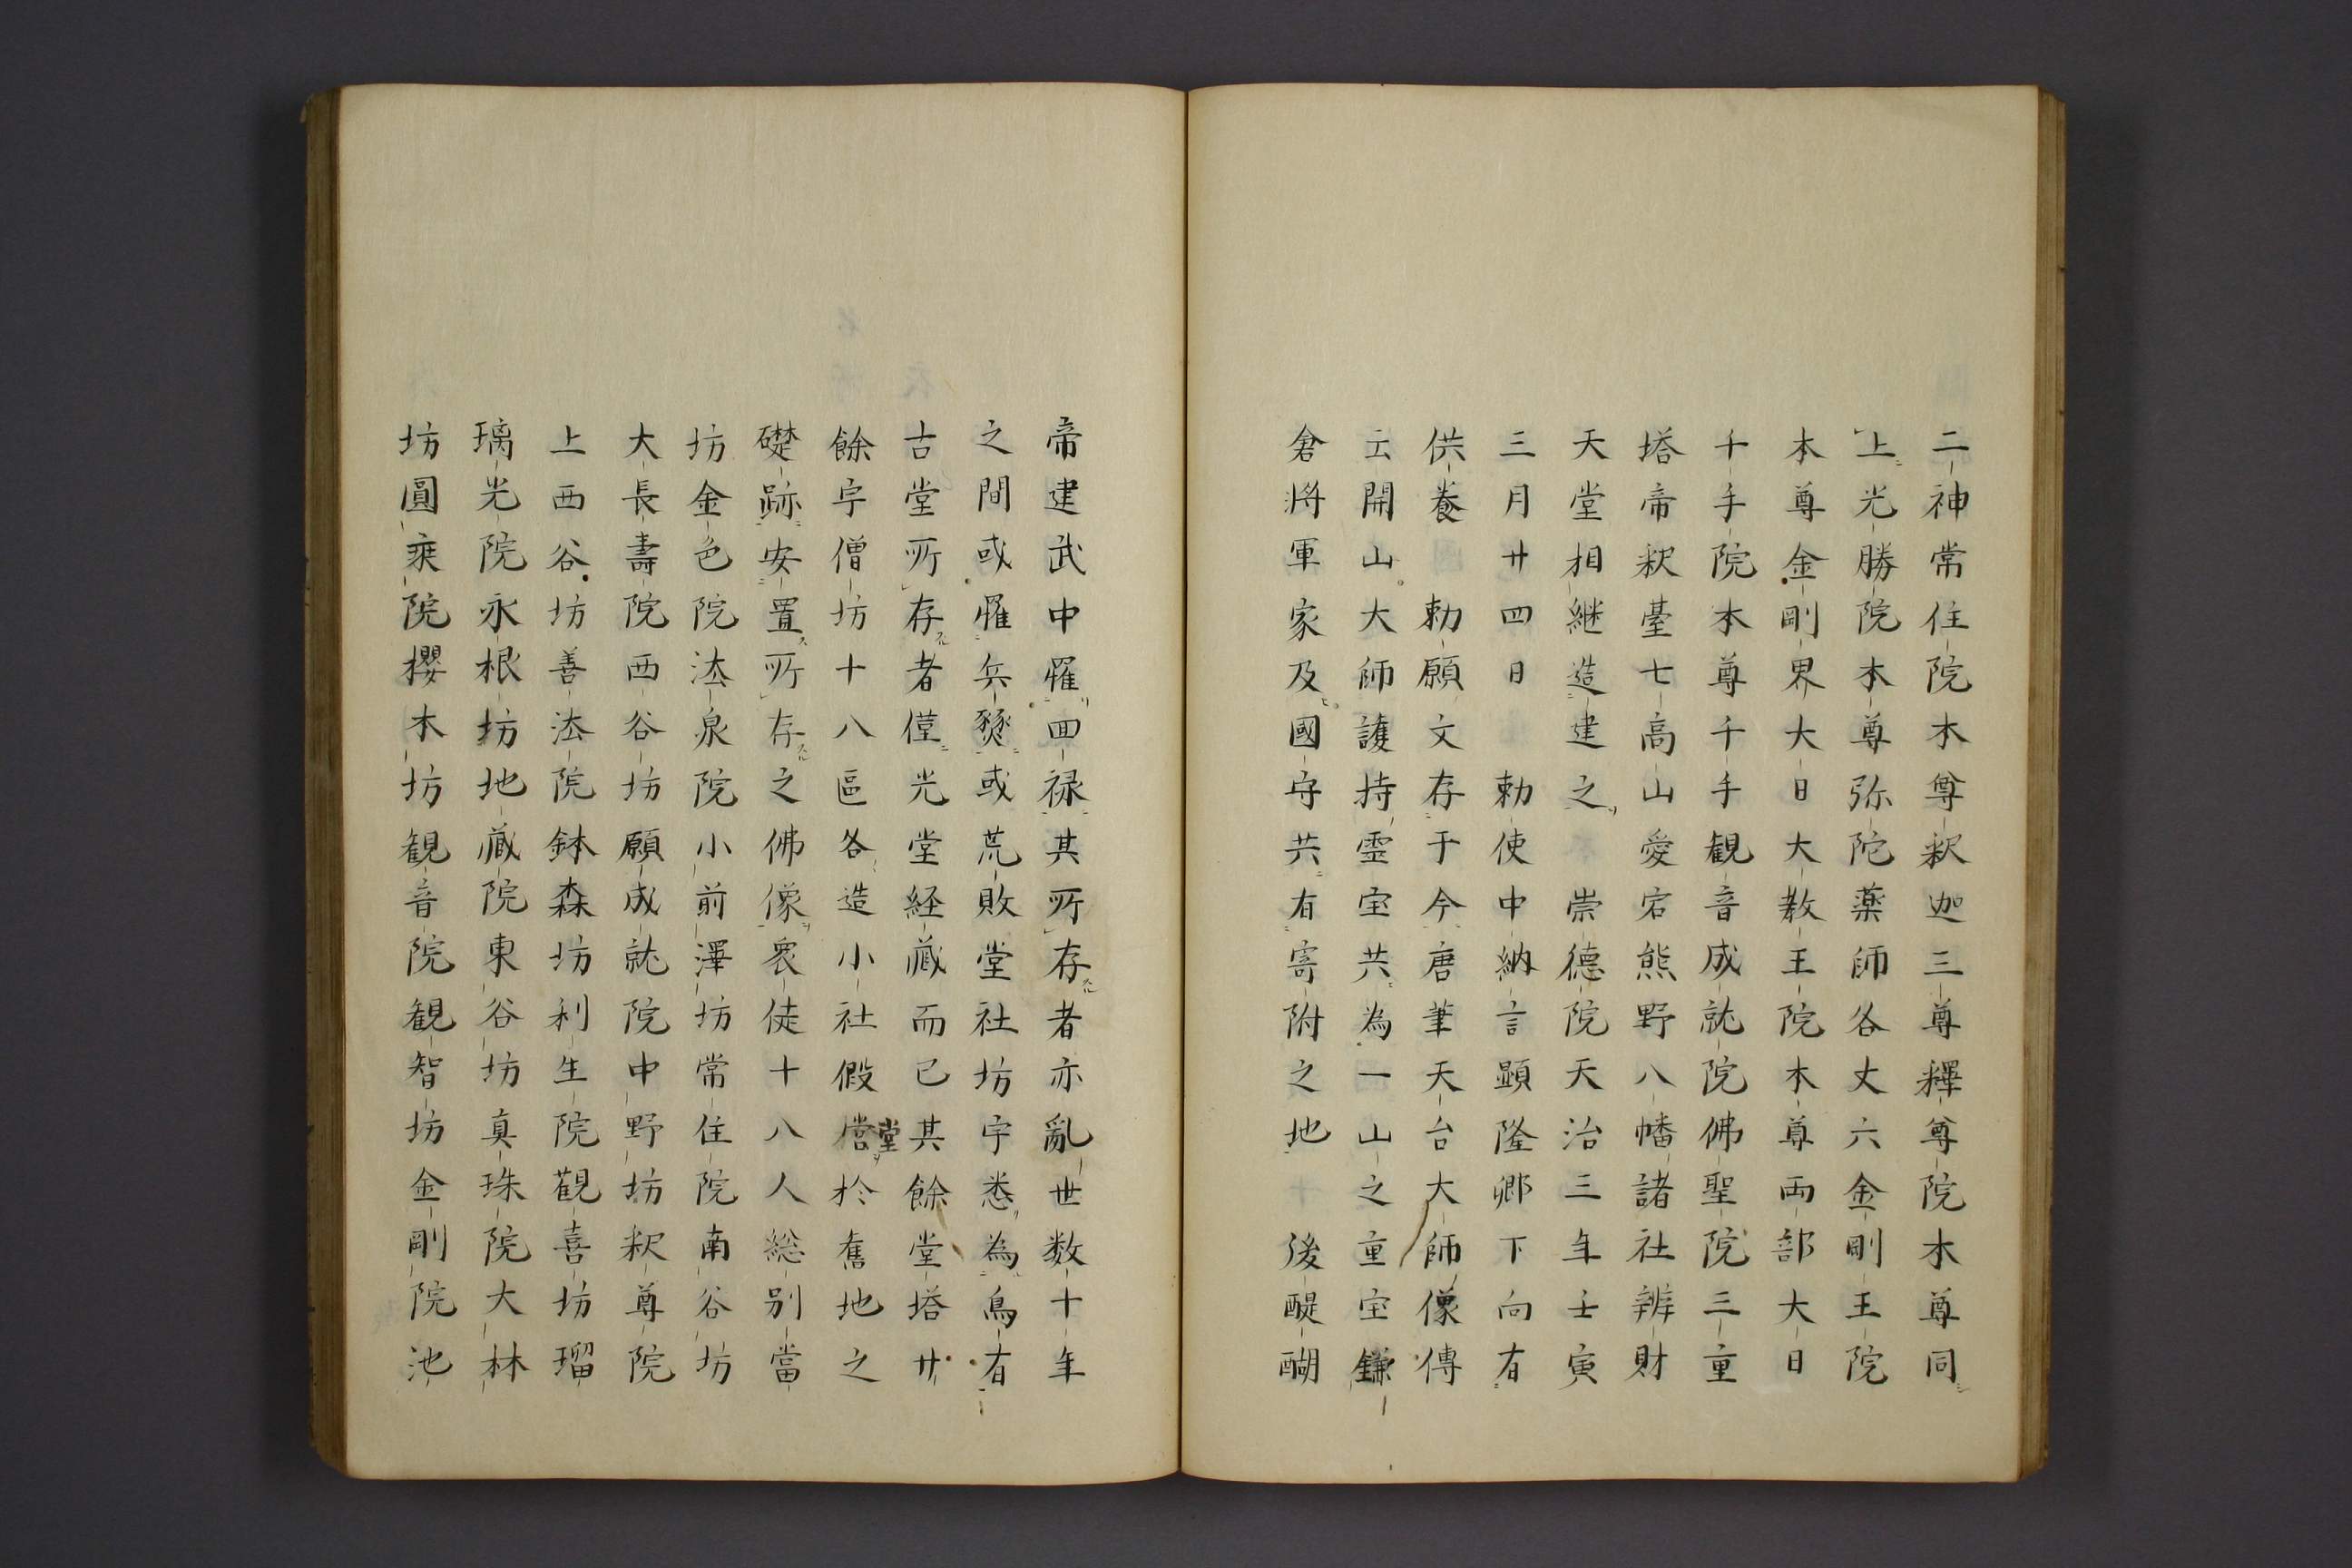 二神常住院本尊釈迦三尊釋尊院本尊同
上光勝院本尊弥陀薬師各丈六金剛王院
本尊金剛界大日大教王院本尊両部大日
千手院本尊千手観音成就院佛聖院三重
塔帝釈臺七高山愛宕熊野八幡諸社辨財
天堂相継造建之　崇德院天治三年壬寅
三月廿四日　勅使中納言顕隆卿下向有
供養　勅願文存于今唐筆天台大師像傳
云開山大師護持霊宝共為一山之重宝鎌
倉将軍家及國守共有寄附之地　後醍醐
帝建武中罹囬禄其所存者亦亂世数十年
之間或罹兵燹或荒敗堂社坊宇悉為烏有
古堂所存者僅光堂経蔵而已其餘堂塔廿
餘宇僧坊十八區各造小社假堂於舊地之
礎跡安置所存之佛像衆徒十八人総別當
坊金色院法泉院小前澤坊常住院南谷坊
大長壽院西谷坊願成就院中野坊釈尊院
上西谷坊善法院鉢森坊利生院觀喜坊瑠
璃光院永根坊地蔵院東谷坊真珠院大林
坊圓乗院櫻本坊観音院観智坊金剛院池